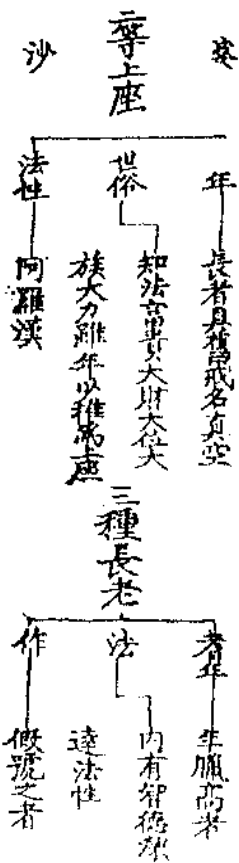 婆
沙
三等上座
年
長者具舊戒名真空
世俗
知法富貴大財大位大
族大力雖年少推為上座
法性
阿羅漢
三種長老
耆年
生臘高者
法
內有智德
達法性
作
假號之者